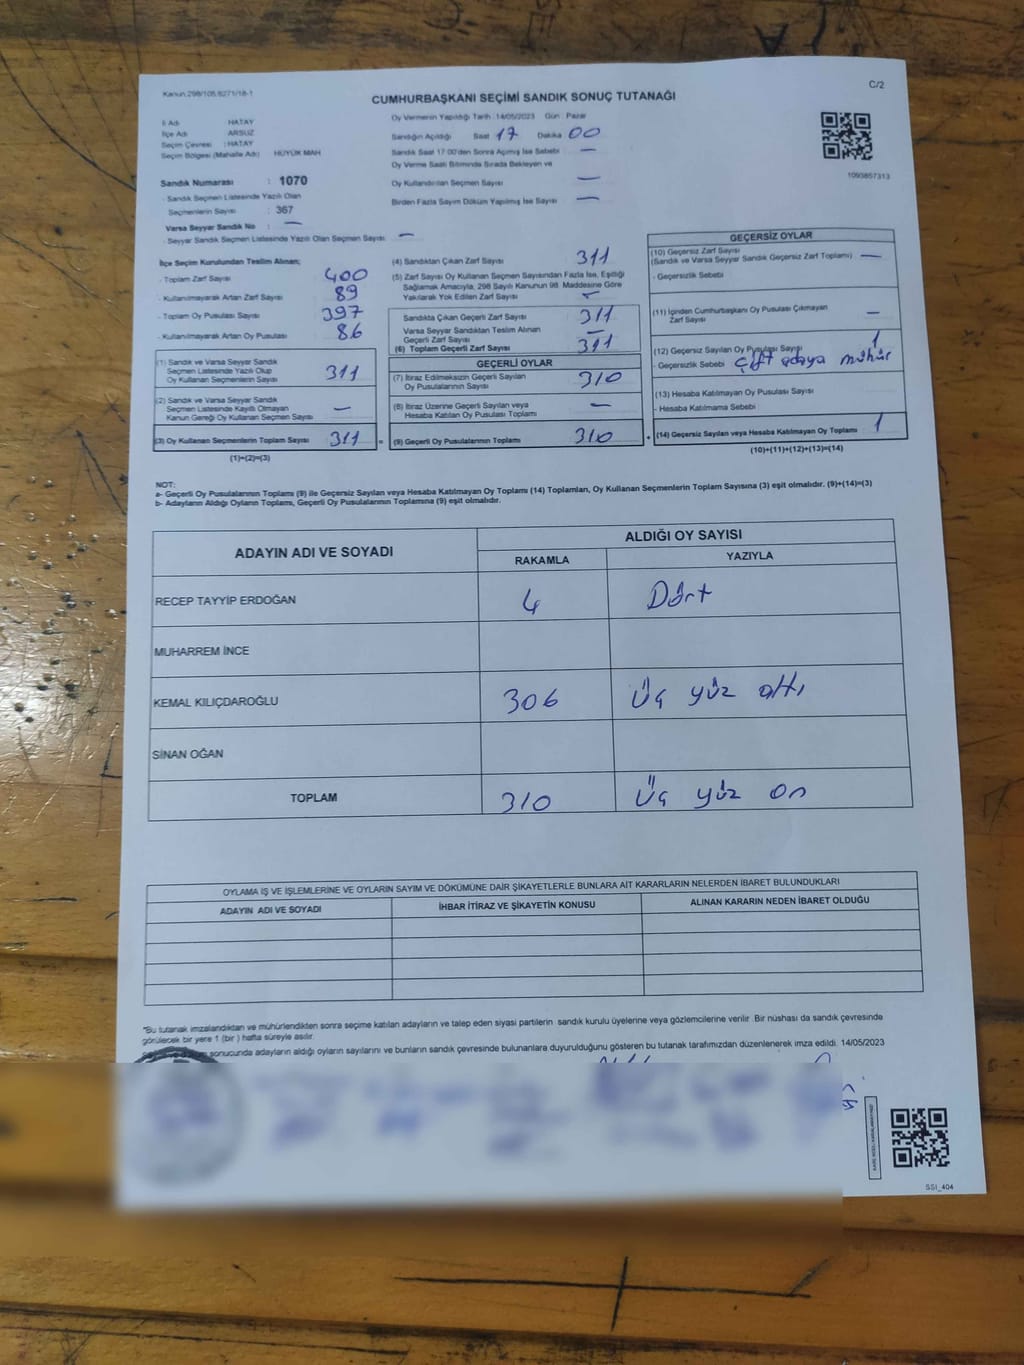 Kanun:298/105,6271/18-1
C/2
CUMHURBAŞKANI SEÇİMİ SANDIK SONUÇ TUTANAĞI
İl Adı : HATAY
İlçe Adı : ARSUZ
Seçim Çevresi : HATAY
Seçim Bölgesi (Mahalle Adı) : HÜYÜK MAH
Sandık Numarası : 1070
- Sandık Seçmen Listesinde Yazılı Olan
Seçmenlerin Sayısı : 367
Varsa Seyyar Sandık No : —
- Seyyar Sandık Seçmen Listesinde Yazılı Olan Seçmen Sayısı : —
Oy Vermenin Yapıldığı Tarih :14/05/2023 Gün : Pazar
Sandığın Açıldığı Saat 17 Dakika 00
Sandık Saat 17:00'den Sonra Açılmış İse Sebebi —
Oy Verme Saati Bitiminde Sırada Bekleyen ve
Oy Kullandırılan Seçmen Sayısı —
Birden Fazla Sayım Döküm Yapılmış İse Sayısı —
1093857313
İlçe Seçim Kurulundan Teslim Alınan;
- Toplam Zarf Sayısı 400
- Kullanılmayarak Artan Zarf Sayısı 89
- Toplam Oy Pusulası Sayısı 397
- Kullanılmayarak Artan Oy Pusulası 86
(1) Sandık ve Varsa Seyyar Sandık
Seçmen Listesinde Yazılı Olup
Oy Kullanan Seçmenlerin Sayısı 311
(2) Sandık ve Varsa Seyyar Sandık
Seçmen Listesinde Kayıtlı Olmayan
Kanun Gereği Oy Kullanan Seçmen Sayısı —
(3) Oy Kullanan Seçmenlerin Toplam Sayısı 311 =
(1)+(2)=(3)
(4) Sandıktan Çıkan Zarf Sayısı 311
(5) Zarf Sayısı Oy Kullanan Seçmen Sayısından Fazla İse, Eşitliği
Sağlamak Amacıyla, 298 Sayılı Kanunun 98. Maddesine Göre
Yakılarak Yok Edilen Zarf Sayısı —
Sandıkta Çıkan Geçerli Zarf Sayısı 311
Varsa Seyyar Sandıktan Teslim Alınan
Geçerli Zarf Sayısı —
(6) Toplam Geçerli Zarf Sayısı 311
GEÇERLİ OYLAR
(7) İtiraz Edilmeksizin Geçerli Sayılan
Oy Pusulalarının Sayısı 310
(8) İtiraz Üzerine Geçerli Sayılan veya
Hesaba Katılan Oy Pusulası Toplamı —
(9) Geçerli Oy Pusulalarının Toplamı 310 +
GEÇERSİZ OYLAR
(10) Geçersiz Zarf Sayısı
(Sandık ve Varsa Seyyar Sandık Geçersiz Zarf Toplamı) —
- Geçersizlik Sebebi
(11) İçinden Cumhurbaşkanı Oy Pusulası Çıkmayan
Zarf Sayısı —
(12) Geçersiz Sayılan Oy Pusulası Sayısı 1
- Geçersizlik Sebebi çift adaya mühür
(13) Hesaba Katılmayan Oy Pusulası Sayısı
- Hesaba Katılmama Sebebi
(14) Geçersiz Sayılan veya Hesaba Katılmayan Oy Toplamı 1
(10)+(11)+(12)+(13)=(14)
NOT:
a- Geçerli Oy Pusulalarının Toplamı (9) ile Geçersiz Sayılan veya Hesaba Katılmayan Oy Toplamı (14) Toplamları, Oy Kullanan Seçmenlerin Toplam Sayısına (3) eşit olmalıdır. (9)+(14)=(3)
b- Adayların Aldığı Oyların Toplamı, Geçerli Oy Pusulalarının Toplamına (9) eşit olmalıdır.
ADAYIN ADI VE SOYADI
ALDIĞI OY SAYISI
RAKAMLA YAZIYLA
RECEP TAYYİP ERDOĞAN 4 Dört
MUHARREM İNCE
KEMAL KILIÇDAROĞLU 306 üç yüz altı
SİNAN OĞAN
TOPLAM 310 üç yüz on
OYLAMA İŞ VE İŞLEMLERİNE VE OYLARIN SAYIM VE DÖKÜMÜNE DAİR ŞİKAYETLERLE BUNLARA AİT KARARLARIN NELERDEN İBARET BULUNDUKLARI
ADAYIN ADI VE SOYADI İHBAR İTİRAZ VE ŞİKAYETİN KONUSU ALINAN KARARIN NEDEN İBARET OLDUĞU
"Bu tutanak imzalandıktan ve mühürlendikten sonra seçime katılan adayların ve talep eden siyasi partilerin sandık kurulu üyelerine veya gözlemcilerine verilir. Bir nüshası da sandık çevresinde
görülecek bir yere 1 (bir) hafta süreyle asılır.
sonucunda adayların aldığı oyların sayılarını ve bunların sandık çevresinde bulunanlara duyurulduğunu gösteren bu tutanak tarafımızdan düzenlenerek imza edildi. 14/05/2023
SSI_404